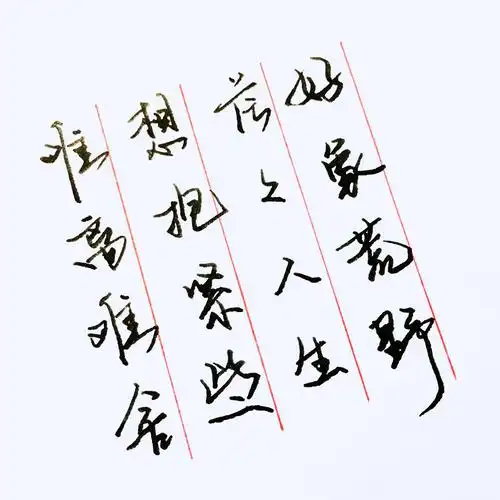 难离难舍
想抱紧些
茫々人生
好象荒野